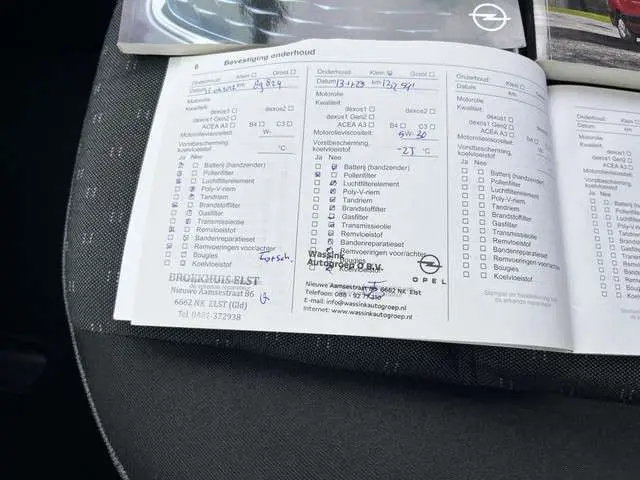 6 Bevestiging onderhoud
Onderhoud: Klein Groot
Datum km 89824
Motorolie
Kwaliteit:
dexos1 dexos2
dexos1 Gen2
ACEA A3 B4 C3
Motorolieviscositeit: W-
Vorstbescherming,
koelvloeistof °C
Ja Nee
Batterij (handzender)
Pollenfilter
Luchtfilterelement
Poly-V-riem
Tandriem
Brandstoffilter
Gasfilter
Transmissieolie
Remvloeistof
Bandenreparatieset
Remvoeringen voor/achter
Bougies
Koelvloeistof
BROEKHUIS ELST
Nieuwe Aamsestraat 86
6662 NK ELST (Gld)
Tel. 0481-372938
Onderhoud: Klein Groot
Datum km
Motorolie
Kwaliteit:
dexos1 dexos2
dexos1 Gen2
ACEA A3 B4 C3
Motorolieviscositeit: 5W-30
Vorstbescherming,
koelvloeistof °C
Ja Nee
Batterij (handzender)
Pollenfilter
Luchtfilterelement
Poly-V-riem
Tandriem
Brandstoffilter
Gasfilter
Transmissieolie
Remvloeistof
Bandenreparatieset
Remvoeringen voor/achter
Bougies
Koelvloeistof
Wassink
Autogroep
OPEL
Nieuwe Aamsestraat 85 6662 NK Elst
Telefoon: 088 - 92
E-mail: info@wassinkautogroep.nl
Internet: www.wassinkautogroep.nl
Onderhoud: Klein Groot
Datum km
Motorolie
Kwaliteit:
dexos1 dexos2
dexos1 Gen2
ACEA A3 B4 C3
Motorolieviscositeit: W-
Vorstbescherming,
koelvloeistof °C
Ja Nee
Batterij (handzender)
Pollenfilter
Luchtfilterelement
Poly-V-riem
Tandriem
Brandstoffilter
Gasfilter
Transmissieolie
Remvloeistof
Bandenreparatieset
Remvoeringen voor/achter
Bougies
Koelvloeistof
Stempel en handtekening van
de erkende reparateur
Onderhoud:
Datum
Motorolie
Kwaliteit: